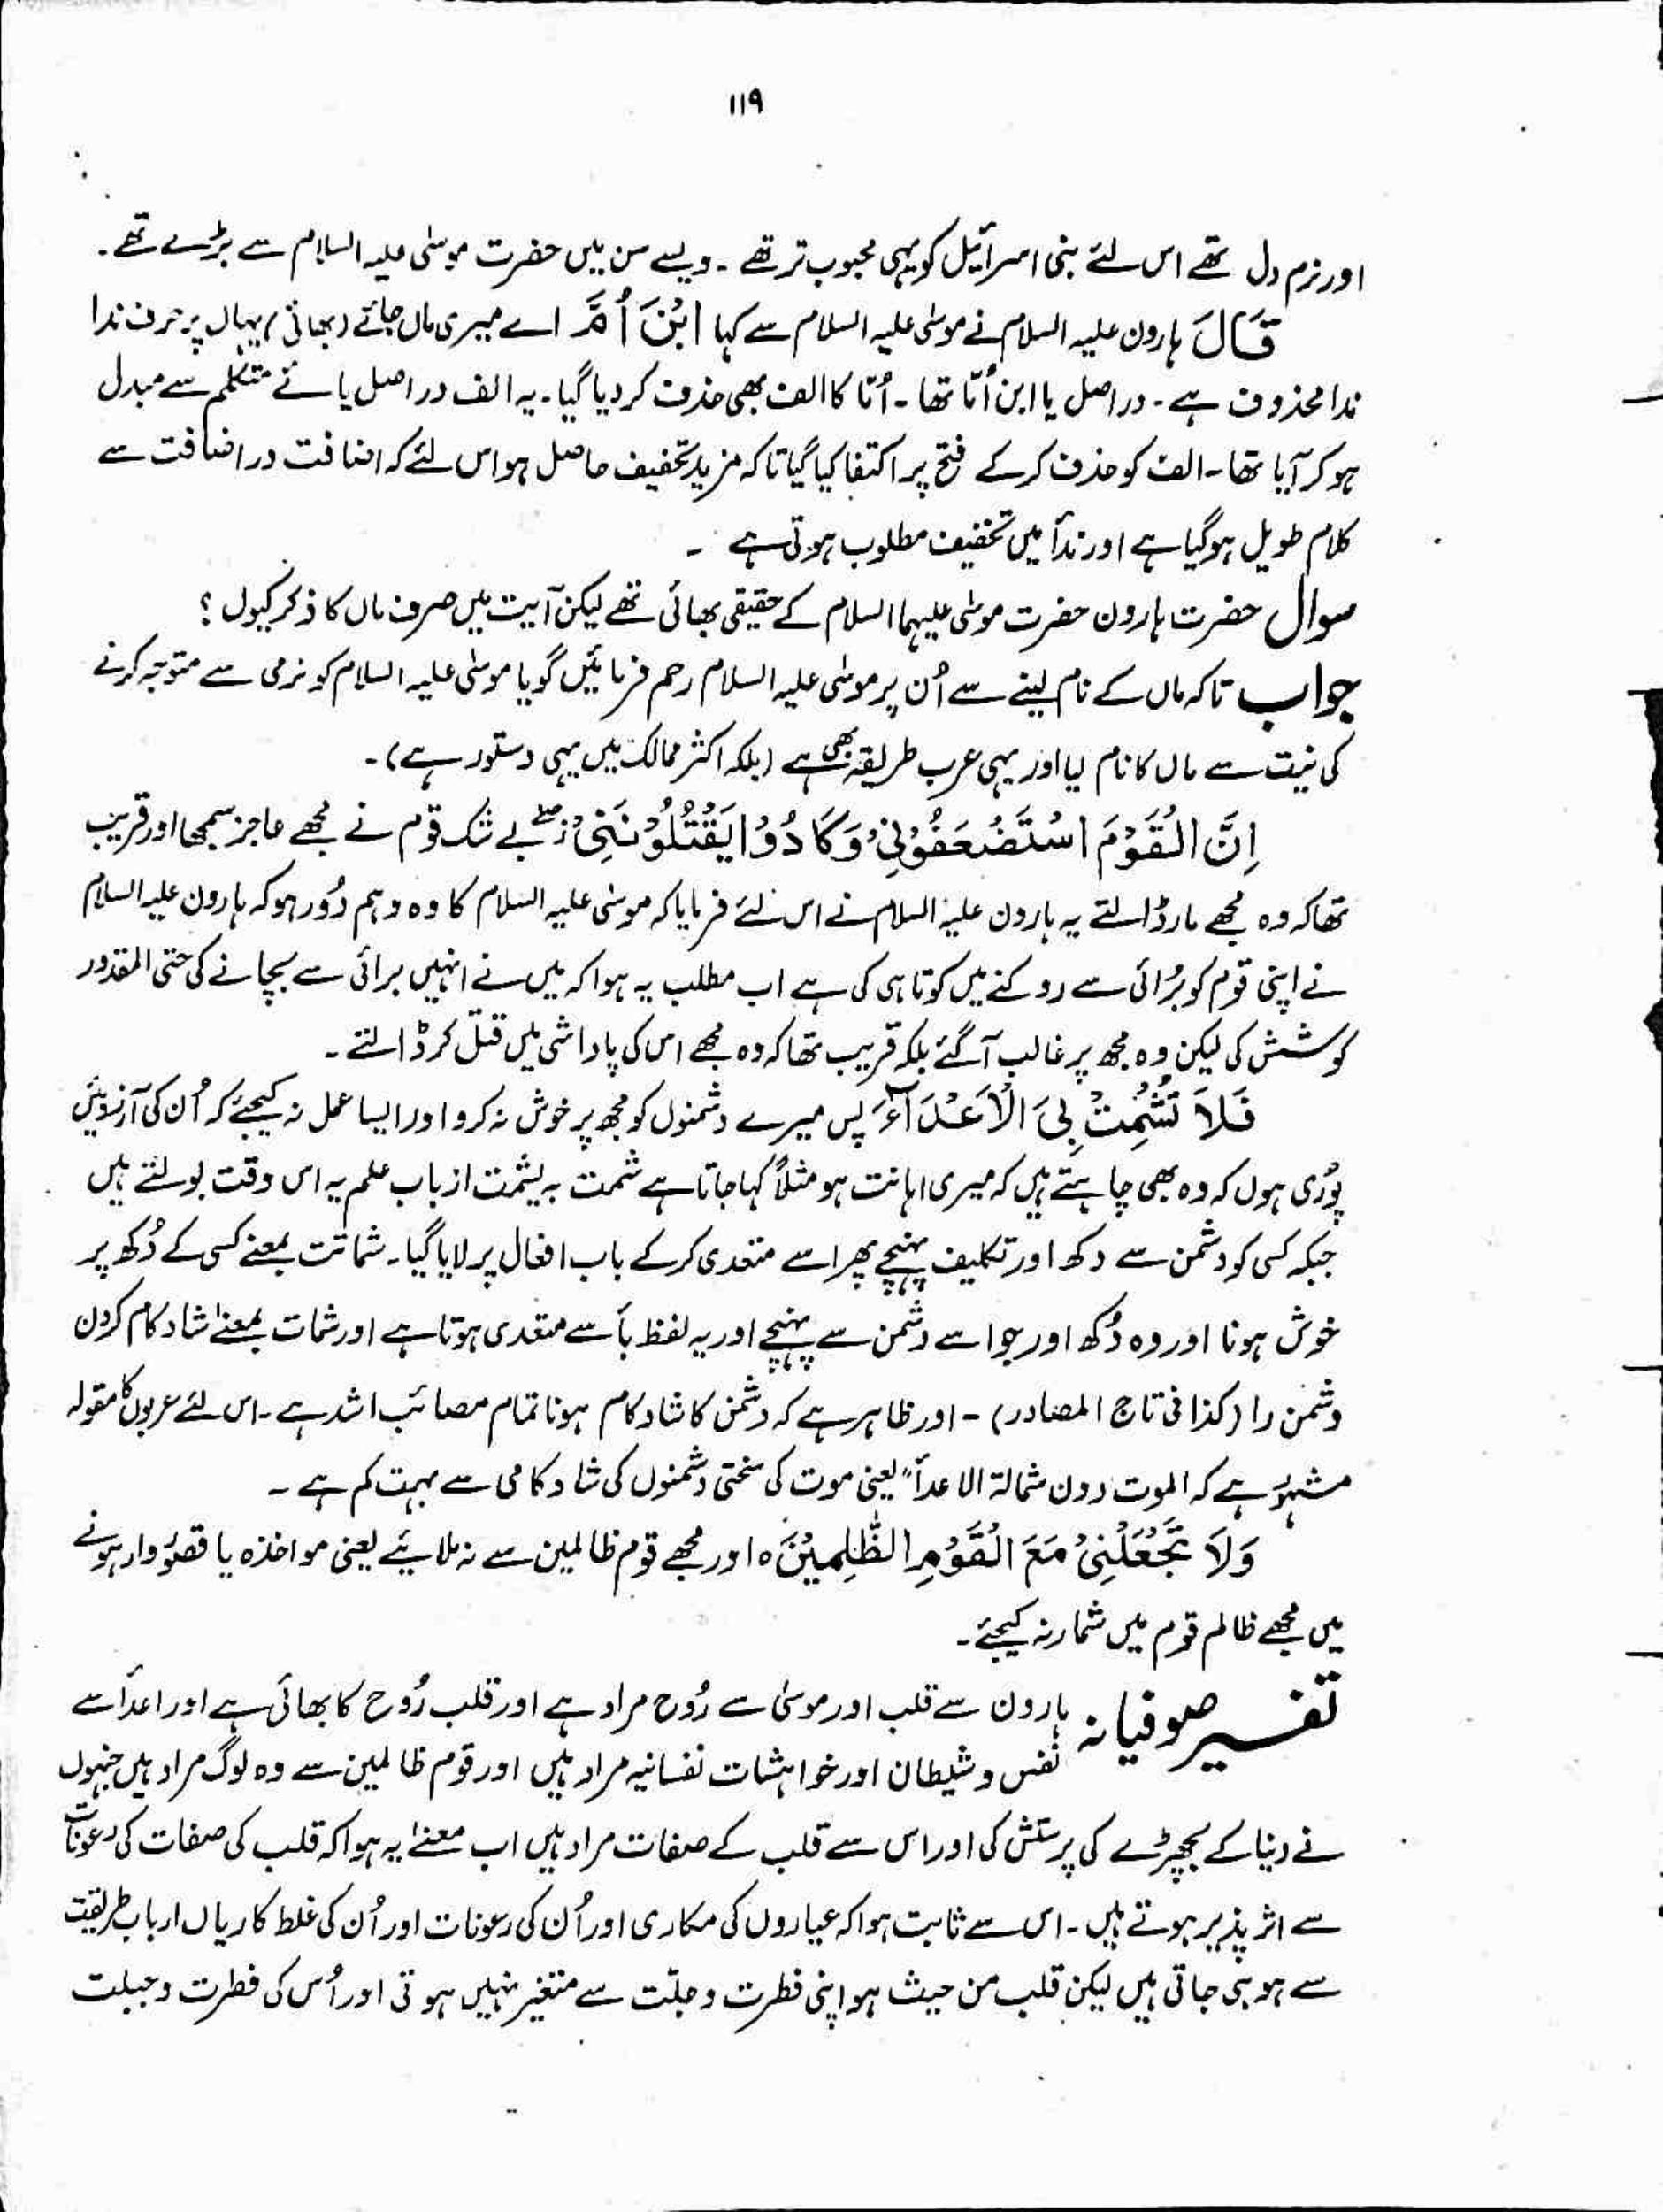 ۱۱۹
اور نرم دل تھے اس لئے بنی اسرائیل کو یہی محبوب تر تھے ۔ ویسے سن میں حضرت موسٰی علیہ السلام سے بڑے تھے ۔
قَالَ ہارون علیہ السلام نے موسٰی علیہ السلام سے کہا ابْنَ اُمَّ اے میری ماں جائے (بھائی) یہاں پر حرف ندا
ندا محذوف ہے ۔ دراصل یا ابن اُمّا تھا ۔ اُمّا کا الف بھی حذف کر دیا گیا ۔ یہ الف دراصل یائے متکلم سے مبدل
ہو کر آیا تھا ۔ الف کو حذف کر کے فتح پر اکتفا کیا گیا تاکہ مزید تخفیف حاصل ہو اس لئے کہ اضافت در اضافت سے
کلام طویل ہو گیا ہے اور ندأ میں تخفیف مطلوب ہوتی ہے ۔
سوال حضرت ہارون حضرت موسٰی علیہما السلام کے حقیقی بھائی تھے لیکن آیت میں صرف ماں کا ذکر کیوں ؟
جواب تاکہ ماں کے نام لینے سے اُن پر موسٰی علیہ السلام رحم فرمائیں گویا موسٰی علیہ السلام کو نرمی سے متوجہ کرنے
کی نیت سے ماں کا نام لیا اور یہی عرب طریقہ بھی ہے (بلکہ اکثر ممالک میں یہی دستور ہے) ۔
اِنَّ الْقَوْمَ اسْتَضْعَفُوْنِیْ وَکَادُوْا یَقْتُلُوْنَنِیْ زصلے بے شک قوم نے مجھے عاجز سمجھا اور قریب
تھا کہ وہ مجھے مار ڈالتے یہ ہارون علیہ السلام نے اس لئے فرمایا کہ موسٰی علیہ السلام کا وہ وہم دُور ہو کہ ہارون علیہ السلام
نے اپنی قوم کو بُرائی سے روکنے میں کوتاہی کی ہے اب مطلب یہ ہوا کہ میں نے انہیں برائی سے بچانے کی حتی المقدور
کوشش کی لیکن وہ مجھ پر غالب آ گئے بلکہ قریب تھا کہ وہ مجھے اس کی پاداش میں قتل کر ڈالتے ۔
فَلَا تُشْمِتْ بِیَ الْاَعْدَآءَ پس میرے دشمنوں کو مجھ پر خوش نہ کرو اور ایسا عمل نہ کیجیئے کہ اُن کی آرزوئیں
پُوری ہوں کہ وہ بھی چاہتے ہیں کہ میری اہانت ہو مثلاً کہا جاتا ہے شمت بہ یشمت از باب علم یہ اس وقت بولتے ہیں
جبکہ کسی کو دشمن سے دکھ اور تکلیف پہنچے پھر اسے متعدی کر کے باب افعال پر لایا گیا ۔ شماتت بمعنے کسی کے دُکھ پر
خوش ہونا اور وہ دُکھ اور جو اسے دشمن سے پہنچے اور یہ لفظ بأ سے متعدی ہوتا ہے اور شمات بمعنے شاد کام کردن
دشمن را (کذا فی تاج المصادر) ۔ اور ظاہر ہے کہ دشمن کا شاد کام ہونا تمام مصائب اشد ہے ۔ اس لئے عربوں کا مقولہ
مشہور ہے کہ الموت دون شمالۃ الاعدأ" یعنی موت کی سختی دشمنوں کی شاد کامی سے بہت کم ہے ۔
وَلَا تَجْعَلْنِیْ مَعَ الْقَوْمِ الظّٰلِمِیْنَ ہ اور مجھے قوم ظالمین سے نہ ملایئے یعنی مواخذہ یا قصور وار ہونے
میں مجھے ظالم قوم میں شمار نہ کیجئے ۔
تفسیر صوفیانہ ہارون سے قلب اور موسٰی سے رُوح مراد ہے اور قلب رُوح کا بھائی ہے اور اعدأ سے
نفس و شیطان اور خواہشات نفسانیہ مراد ہیں اور قوم ظالمین سے وہ لوگ مراد ہیں جنہوں
نے دنیا کے بچھڑے کی پرستش کی اور اس سے قلب کے صفات مراد ہیں اب معنٰے یہ ہوا کہ قلب کی صفات کی رعونات
سے اثر پذیر ہوتے ہیں ۔ اس سے ثابت ہوا کہ عیاروں کی مکاری اور اُن کی رعونات اور اُن کی غلط کاریاں ارباب طریقت
سے ہو ہی جاتی ہیں لیکن قلب من حیث ہو اپنی فطرت و جلّت سے متغیر نہیں ہوتی اور اُس کی فطرت و جبلت